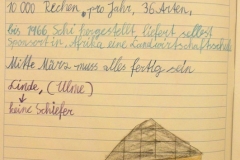 10 000 Rechen, pro Jahr, 36 Arten,
bis 1966 Schi hergestellt, liefert selbst
Sponsert in Afrika eine Landwirtschaftsschule
Mitte März muss alles fertig sein
Linde, (Ulme)
↓
keine Schiefer